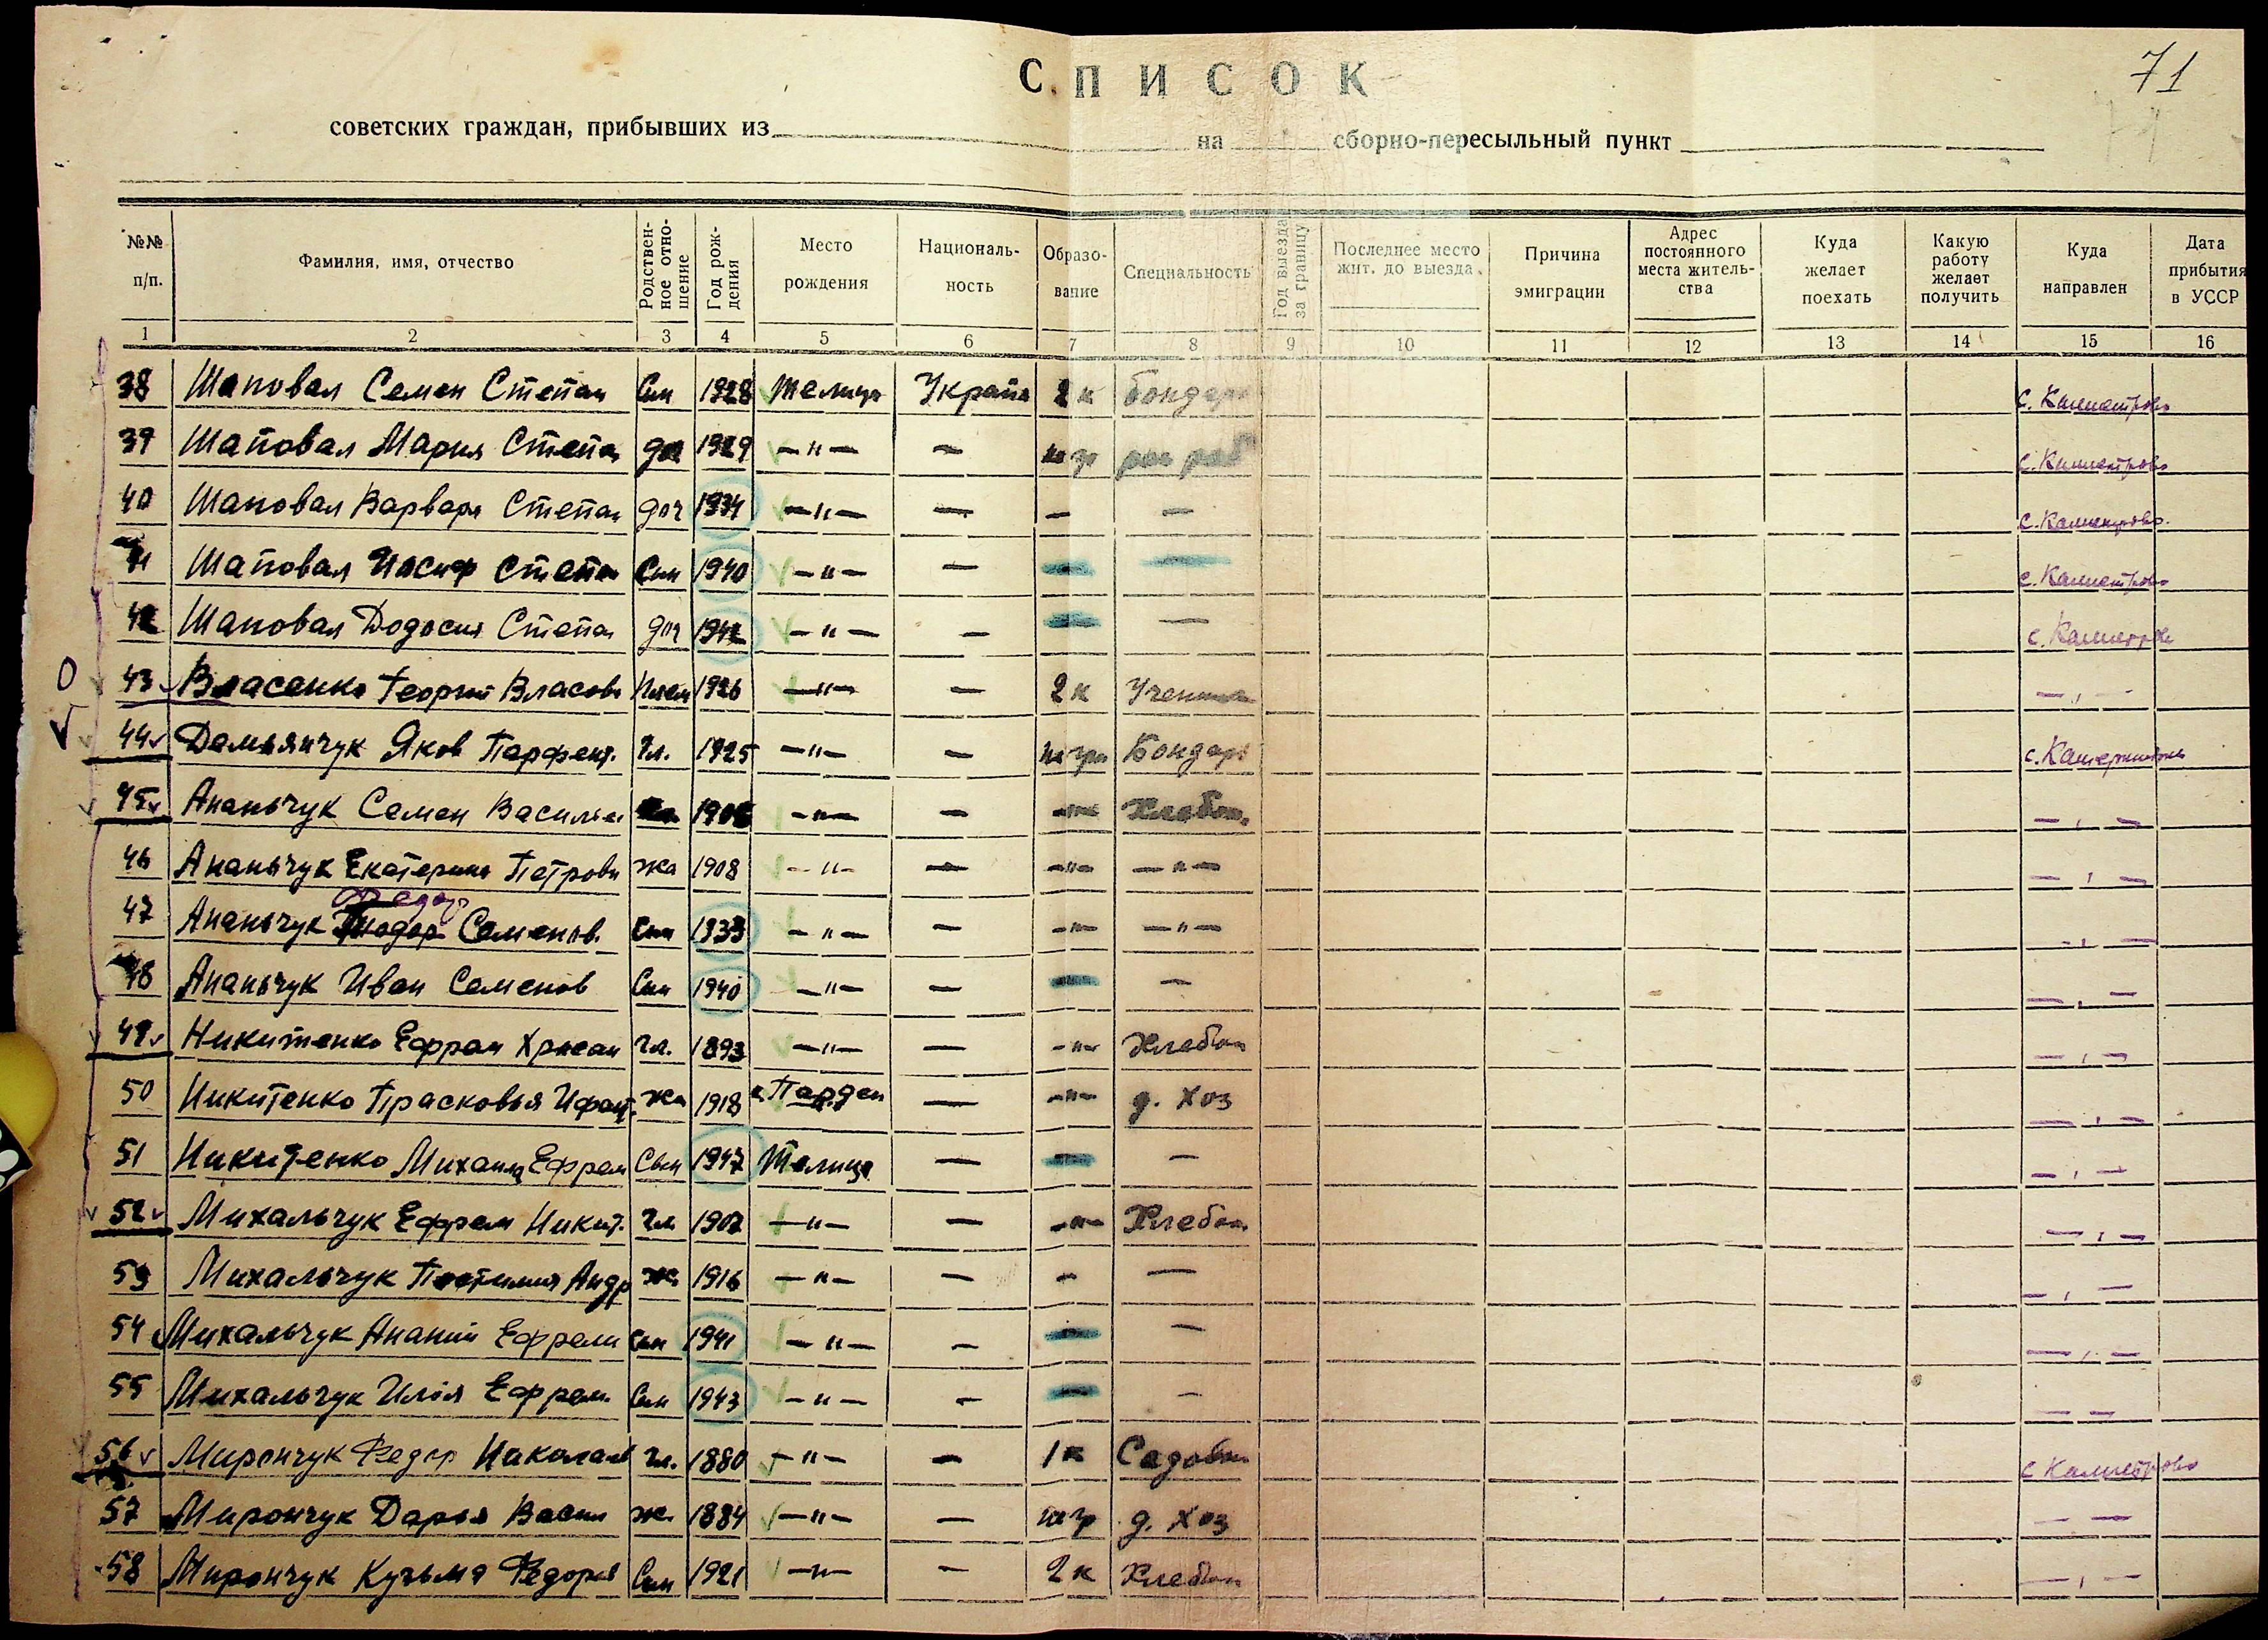 71
СПИСОК
советских граждан, прибывших из на сборно-пересыльный пункт
№№ п/п. Фамилия, имя, отчество Родствен-ное отно-шение Год рож-дения Место рождения Националь-ность Образо-вание Специальность Год выезда за границу Последнее место жит. до выезда. Причина эмиграции Адрес постоянного места житель-ства Куда желает поехать Какую работу желает получить Куда направлен Дата прибытия в УССР
1 2 3 4 5 6 7 8 9 10 11 12 13 14 15 16
38 Шаповал Семен Степан Син 1928 Телица Україн 2 к бондарь
39 Шаповал Мария Степан доч 1929 —"— — м гр
40 Шаповал Варвара Степан доч 1934 —"— — — —
41 Шаповал Иосиф Степан Син 1940 —"— — — —
42 Шаповал Додосия Степан доч 1942 —"— — — —
43 Власенко Георгий Власов Плем 1926 —"— — 2 к Ученик — " —
44 Демьянчук Яков Парфент. Гл. 1925 —"— — м гр Бондарь
45 Ананьчук Семен Василье 1906 —"— — —"— Хлебоп. — " —
46 Ананьчук Екатерина Петровн жа 1908 —"— — —"— —"— — " —
Федор
47 Ананьчук Тиодор Семенов. Син 1933 —"— — —"— —"— — " —
48 Ананьчук Иван Семенов Син 1940 —"— — — — — " —
49 Никитенко Ефрам Хрисан Гл. 1893 —"— — —"— Хлебоп — " —
50 Никитенко Прасковья Ифат. жа 1918 — —"— д. хоз — " —
51 Никитенко Михаил Ефрем Сын 1947 Телица — — — — " —
52 Михальчук Ефрем Никит. Гл 1907 —"— — —"— Хлебоп. — " —
53 Михальчук Андр ж. 1916 —"— — — — — " —
54 Михальчук Ананий Ефреми Син 1941 —"— — — — — " —
55 Михальчук Илія Ефрем. Син 1943 —"— — — — — —
56 Мирончук Федор Николаев Гл. 1880 —"— — 1 к Садовн
57 Мирончук Дарья Васил ж. 1884 —"— — м гр д. хоз — —
58 Мирончук Кузьма Федоров Син 1921 —"— — 2 к Хлебоп — " —